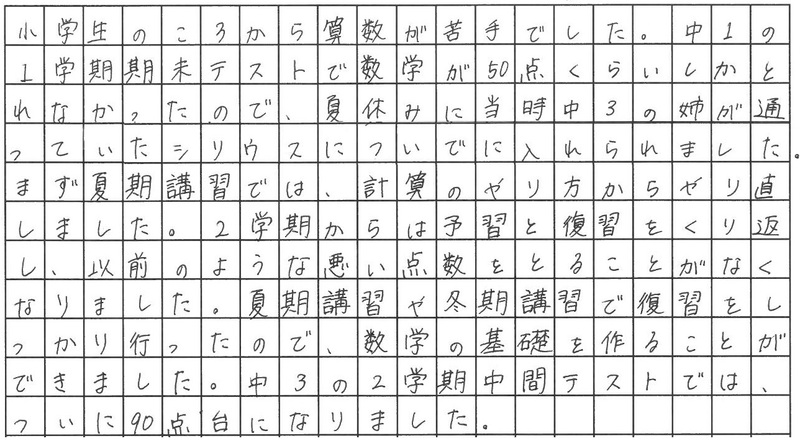 小学生のころから算数が苦手でした。中1の
1学期期末テストで数学が50点くらいしかと
れなかったので、夏休みに当時中3の姉が通
っていたシリウスについでに入れられました。
まず夏期講習では、計算のやり方からやり直
しました。2学期からは予習と復習をくり返
し、以前のような悪い点数をとることがなく
なりました。夏期講習や冬期講習で復習をし
っかり行ったので、数学の基礎を作ることが
できました。中3の2学期中間テストでは、
ついに90点台になりました。